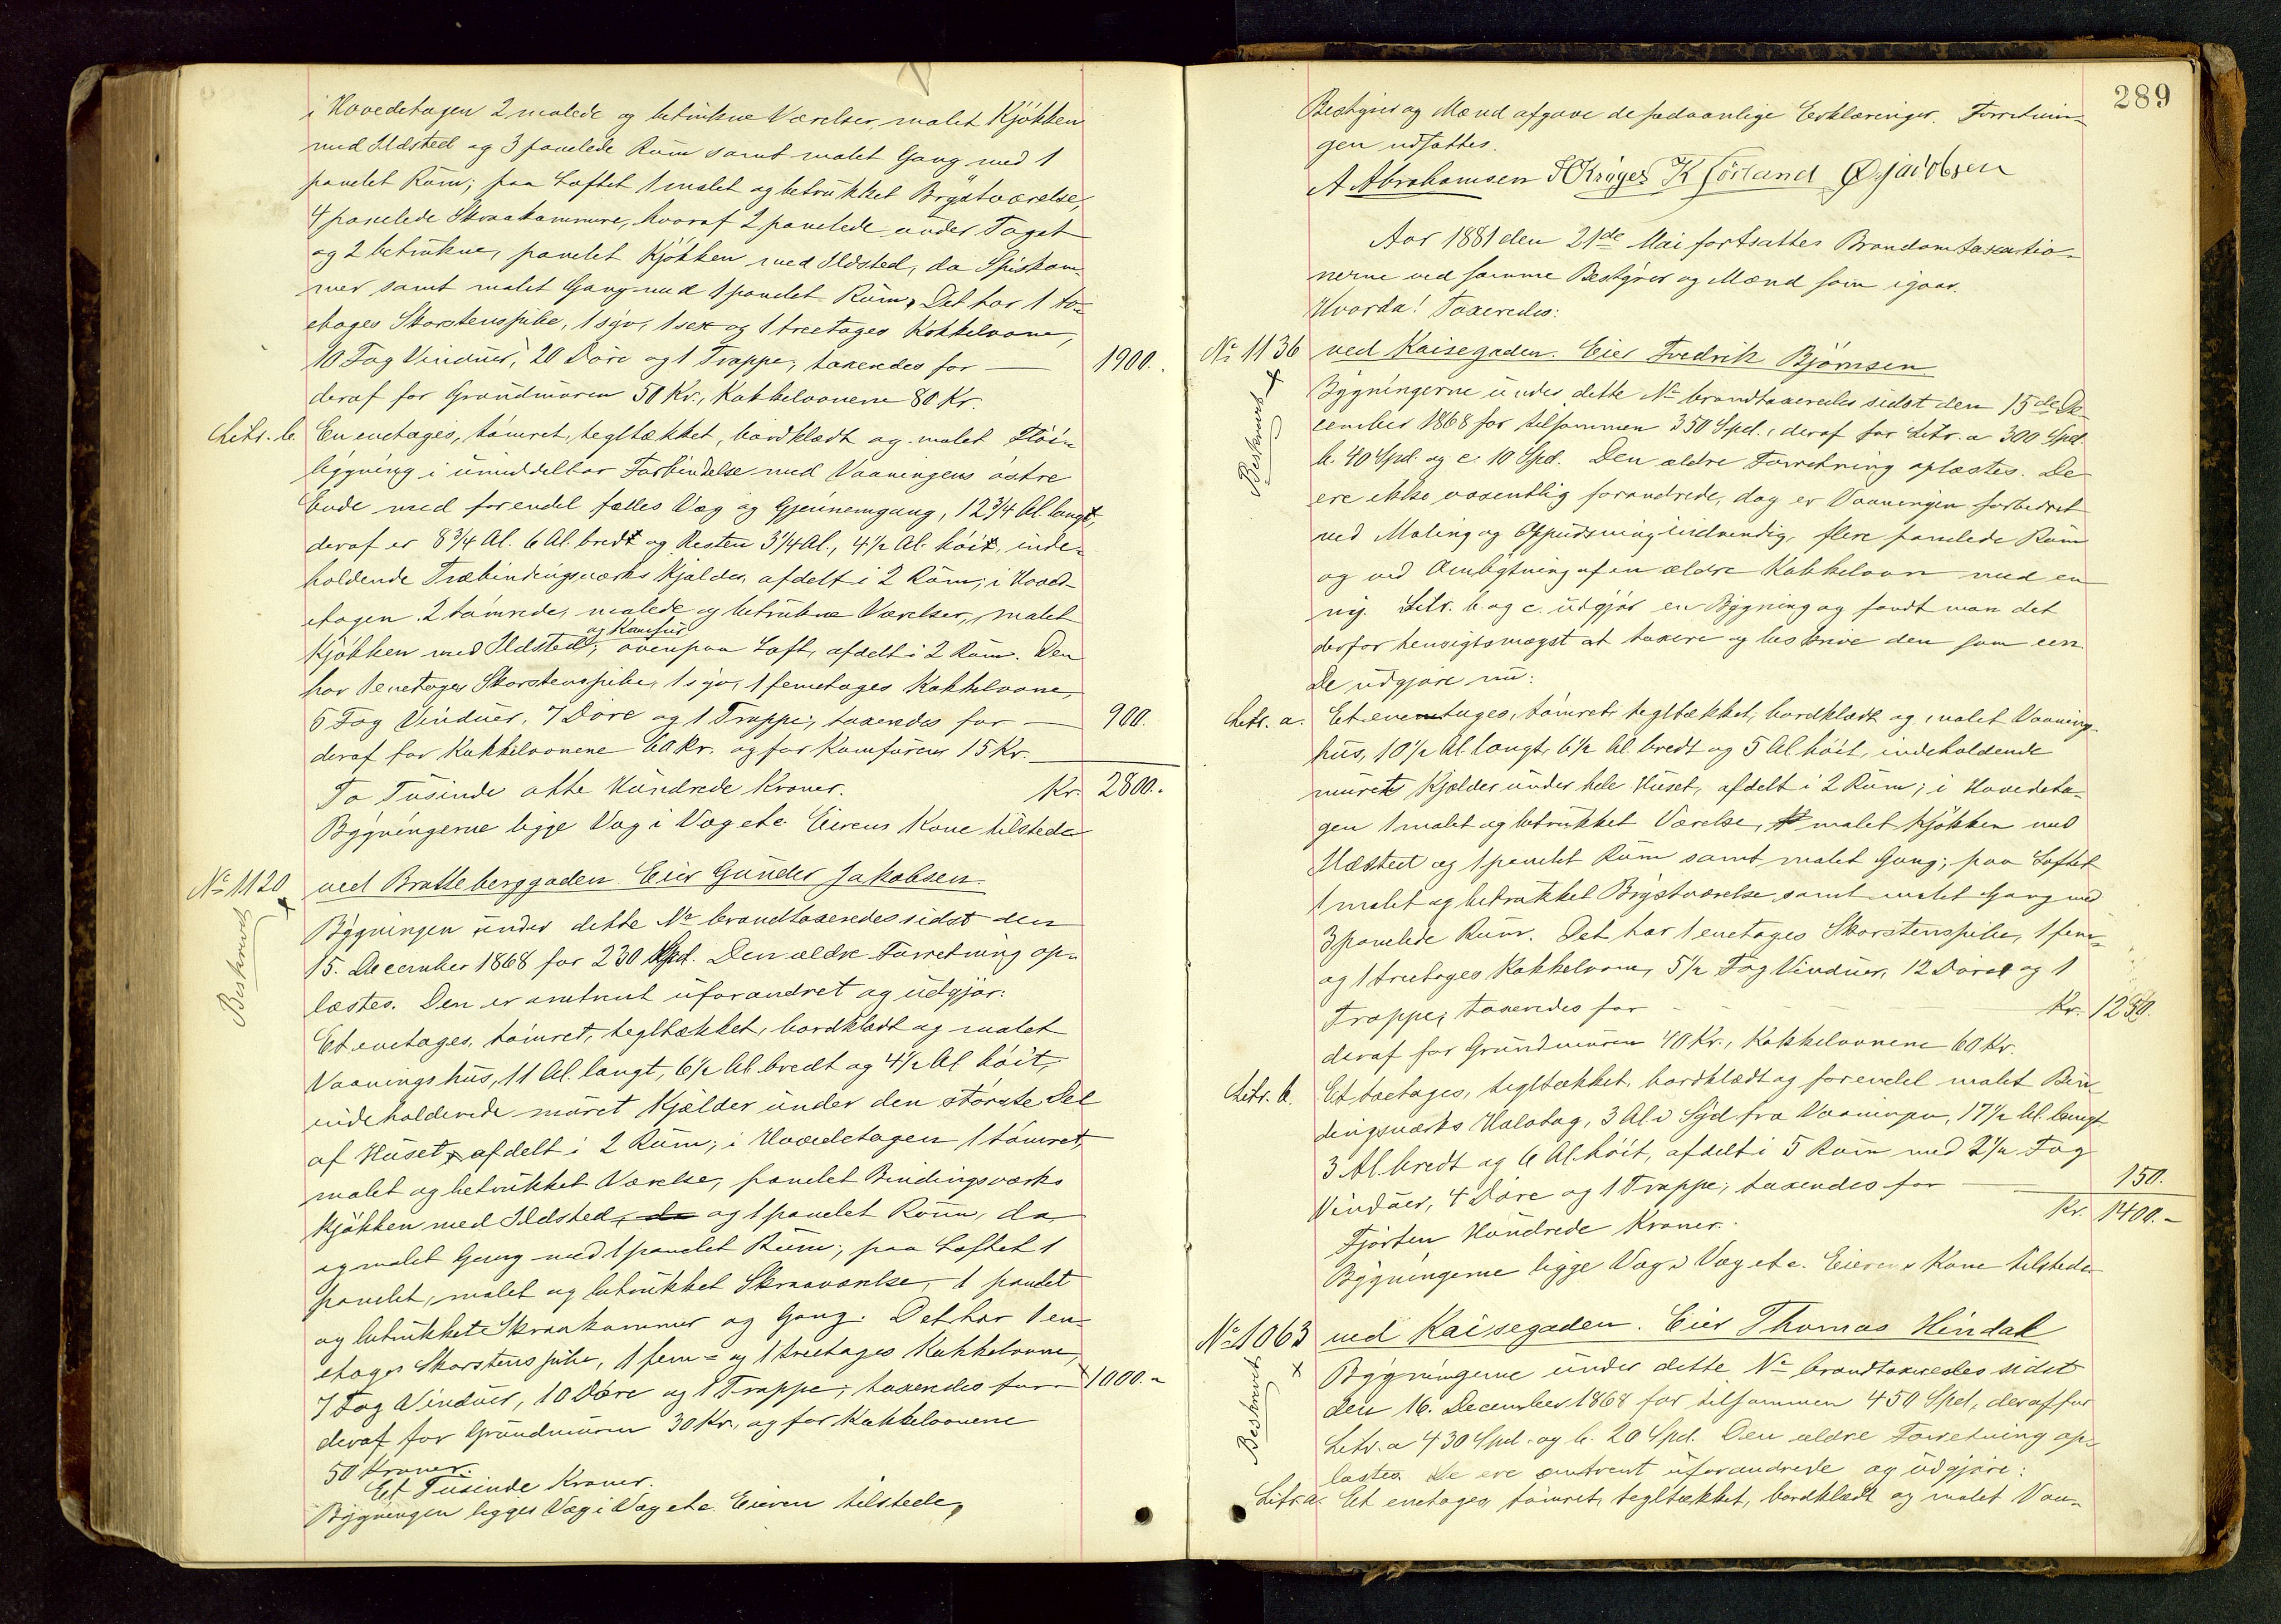 i Hovedetagen 2 malede og betrukne Værelser, malet Kjøkken
med Ildsted og 3 panelede Rum samt malet Gang med 1
panelet Rum; paa Loftet 1 malet og betrukket Brystværelse,
4 panelede Skraakammere, hvoraf 2 panelede under Taget
og 2 betrukne, panelet Kjøkken med Ildsted, do Spiskam-
mer samt malet Gang med 1 panelet Rum. Det har 1 to-
etages Skorstenspibe, 1 syv, 1 sex og 1 treetages Kakkelovne,
10 Fag Vinduer, 20 Døre og 1 Trappe; taxeredes for — 1900.
deraf for Grundmuren 50 Kr., Kakkelovnene 80 Kr.
Litr. b. En enetages, tømret, tegltækket, bordklædt og malet Fløi-
bygning i umiddelbar Forbindelse med Vaaningens østre
Ende med forendel fælles Væg og Gjennemgang, 12 3/4 Al. langt,
deraf er 8 3/4 Al. 6 Al. bredt og Resten 3 1/4 Al., 4 1/2 Al. høit, inde-
holdende Træbindingsværks Kjælder, afdelt i 2 Rum; i Hoved-
etagen 2 tømrede, malede og betrukne Værelser, malet
Kjøkken med Ildsted og Komfur; ovenpaa Loft, afdelt i 2 Rum. Den
har 1 enetages Skorstenspibe, 1 syv, 1 femetages Kakkelovne,
6 Fag Vinduer, 7 Døre og 1 Trappe; taxeredes for — 900.
deraf for Kakkelovnene 60 Kr. og for Komfuren 15 Kr.
To Tusinde otte Hundrede Kroner. Kr. 2800.-
Bygningerne ligge Væg i Væg etc. Eierens Kone tilstede
No 1120 ved Bratteberggaden. Eier Gunder Jakobsen.
Beskrevet
Bygningen under dette No brandtaxeredes sidst den
15. December 1868 for 230 Spd. Den ældre Forretning op-
læstes. Den er omtrent uforandret og udgjør:
Et enetages, tømret, tegltækket, bordklædt og malet
Vaaningshus, 11 Al. langt, 6 1/2 Al. bredt og 4 1/2 Al høit,
indeholdende muret Kjælder under den største Del
af Huset, afdelt i 2 Rum; i Hovedetagen 1 tømret,
malet og betrukket Værelse, panelet Bindingsværks
Kjøkken med Ildsted, do og 1 panelet Rum, do
og malet Gang med 1 panelet Rum; paa Loftet 1
panelet, malet og betrukket Skraaværelse, 1 panelet
og betrukket Skraakammer og Gang. Det har 1 en-
etages Skorstenspibe, 1 fem- og 1 treetages Kakkelovne,
7 Fag Vinduer, 10 Døre og 1 Trappe; taxeredes for — 1000.-
deraf for Grundmuren 30 Kr., og for Kakkelovnene
50 Kroner.
Et Tusinde Kroner.
Bygningen ligger Væg i Væg etc. Eieren tilstede,
289
Bestyrer og Mænd afgave de sædvanlige Erklæringer. Forretnin-
gen udsattes.
A Abrahamsen H Krøger K Sørland Ø Jacobsen
Aar 1881 den 21de Mai fortsattes Brandomtaxatio-
nerne ved samme Bestyrer og Mænd som igaar.
Hvorda! Taxeredes:
No 1136 ved Kaisegaden. Eier Fredrik Bjørnsen
Beskrevet
Bygningerne under dette No brandtaxeredes sidst den 15de De-
cember 1868 for tilsammen 350 Spd., deraf for Litr. a 300 Spd.
b. 40 Spd. og c. 10 Spd. Den ældre Forretning oplæstes. De
ere ikke væsentlig forandrede, dog er Vaaningen forbedret
ved Maling og Oppudsning indvendig, flere panelede Rum
og ved Ombytning af en ældre Kakkelovn med en
ny. Litr. b og c. udgjør en Bygning og fandt man det
derfor hensigtsmæsst at taxere og beskrive den som een.
De udgjøre nu:
Litr. a. Et enetages, tømret, tegltækket, bordklædt og malet Vaanings-
hus, 10 1/2 Al langt, 6 1/2 Al. bredt og 5 Al høit, indeholdende
muret Kjælder under hele Huset, afdelt i 2 Rum; i Hovedeta-
gen 1 malet og betrukket Værelse, malet Kjøkken med
Ildsted og 1 panelet Rum samt malet Gang; paa Loftet
1 malet og betrukket Brystværelse samt malet Gang med
3 panelede Rum. Det har 1 enetages Skorstenspibe, 1 fem-
og 1 treetages Kakkelovne, 5 1/2 Fag Vinduer, 12 Døre og 1
Trappe; taxeredes for — Kr. 1250.
deraf for Grundmuren 40 Kr., Kakkelovnene 60 Kr.
Litr. b. Et toetages, tegltækket, bordklædt og forendel malet Bin-
dingsværks Halvtag, 3 Al i Syd fra Vaaningen, 17 1/2 Al. langt
3 Al. bredt og 6 Al. høit, afdelt i 5 Rum med 2 1/2 Fag
Vinduer, 4 Døre og 1 Trappe; taxeredes for — 150.
Fjorten Hundrede Kroner. Kr. 1400.-
Bygningerne ligge Væg i Væg etc. Eierens Kone tilstede
No 1063 ved Kaisegaden. Eier Thomas Hindal
Beskrevet
Bygningerne under dette No brandtaxeredes sidst
den 16. December 1868 for tilsammen 450 Spd, deraf for
Litr. a 430 Spd. og b. 20 Spd. Den ældre Forretning op-
læstes. De ere omtrent uforandrede og udgjøre:
Litr a. Et enetages, tømret, tegltækket, bordklædt og malet Vaa-